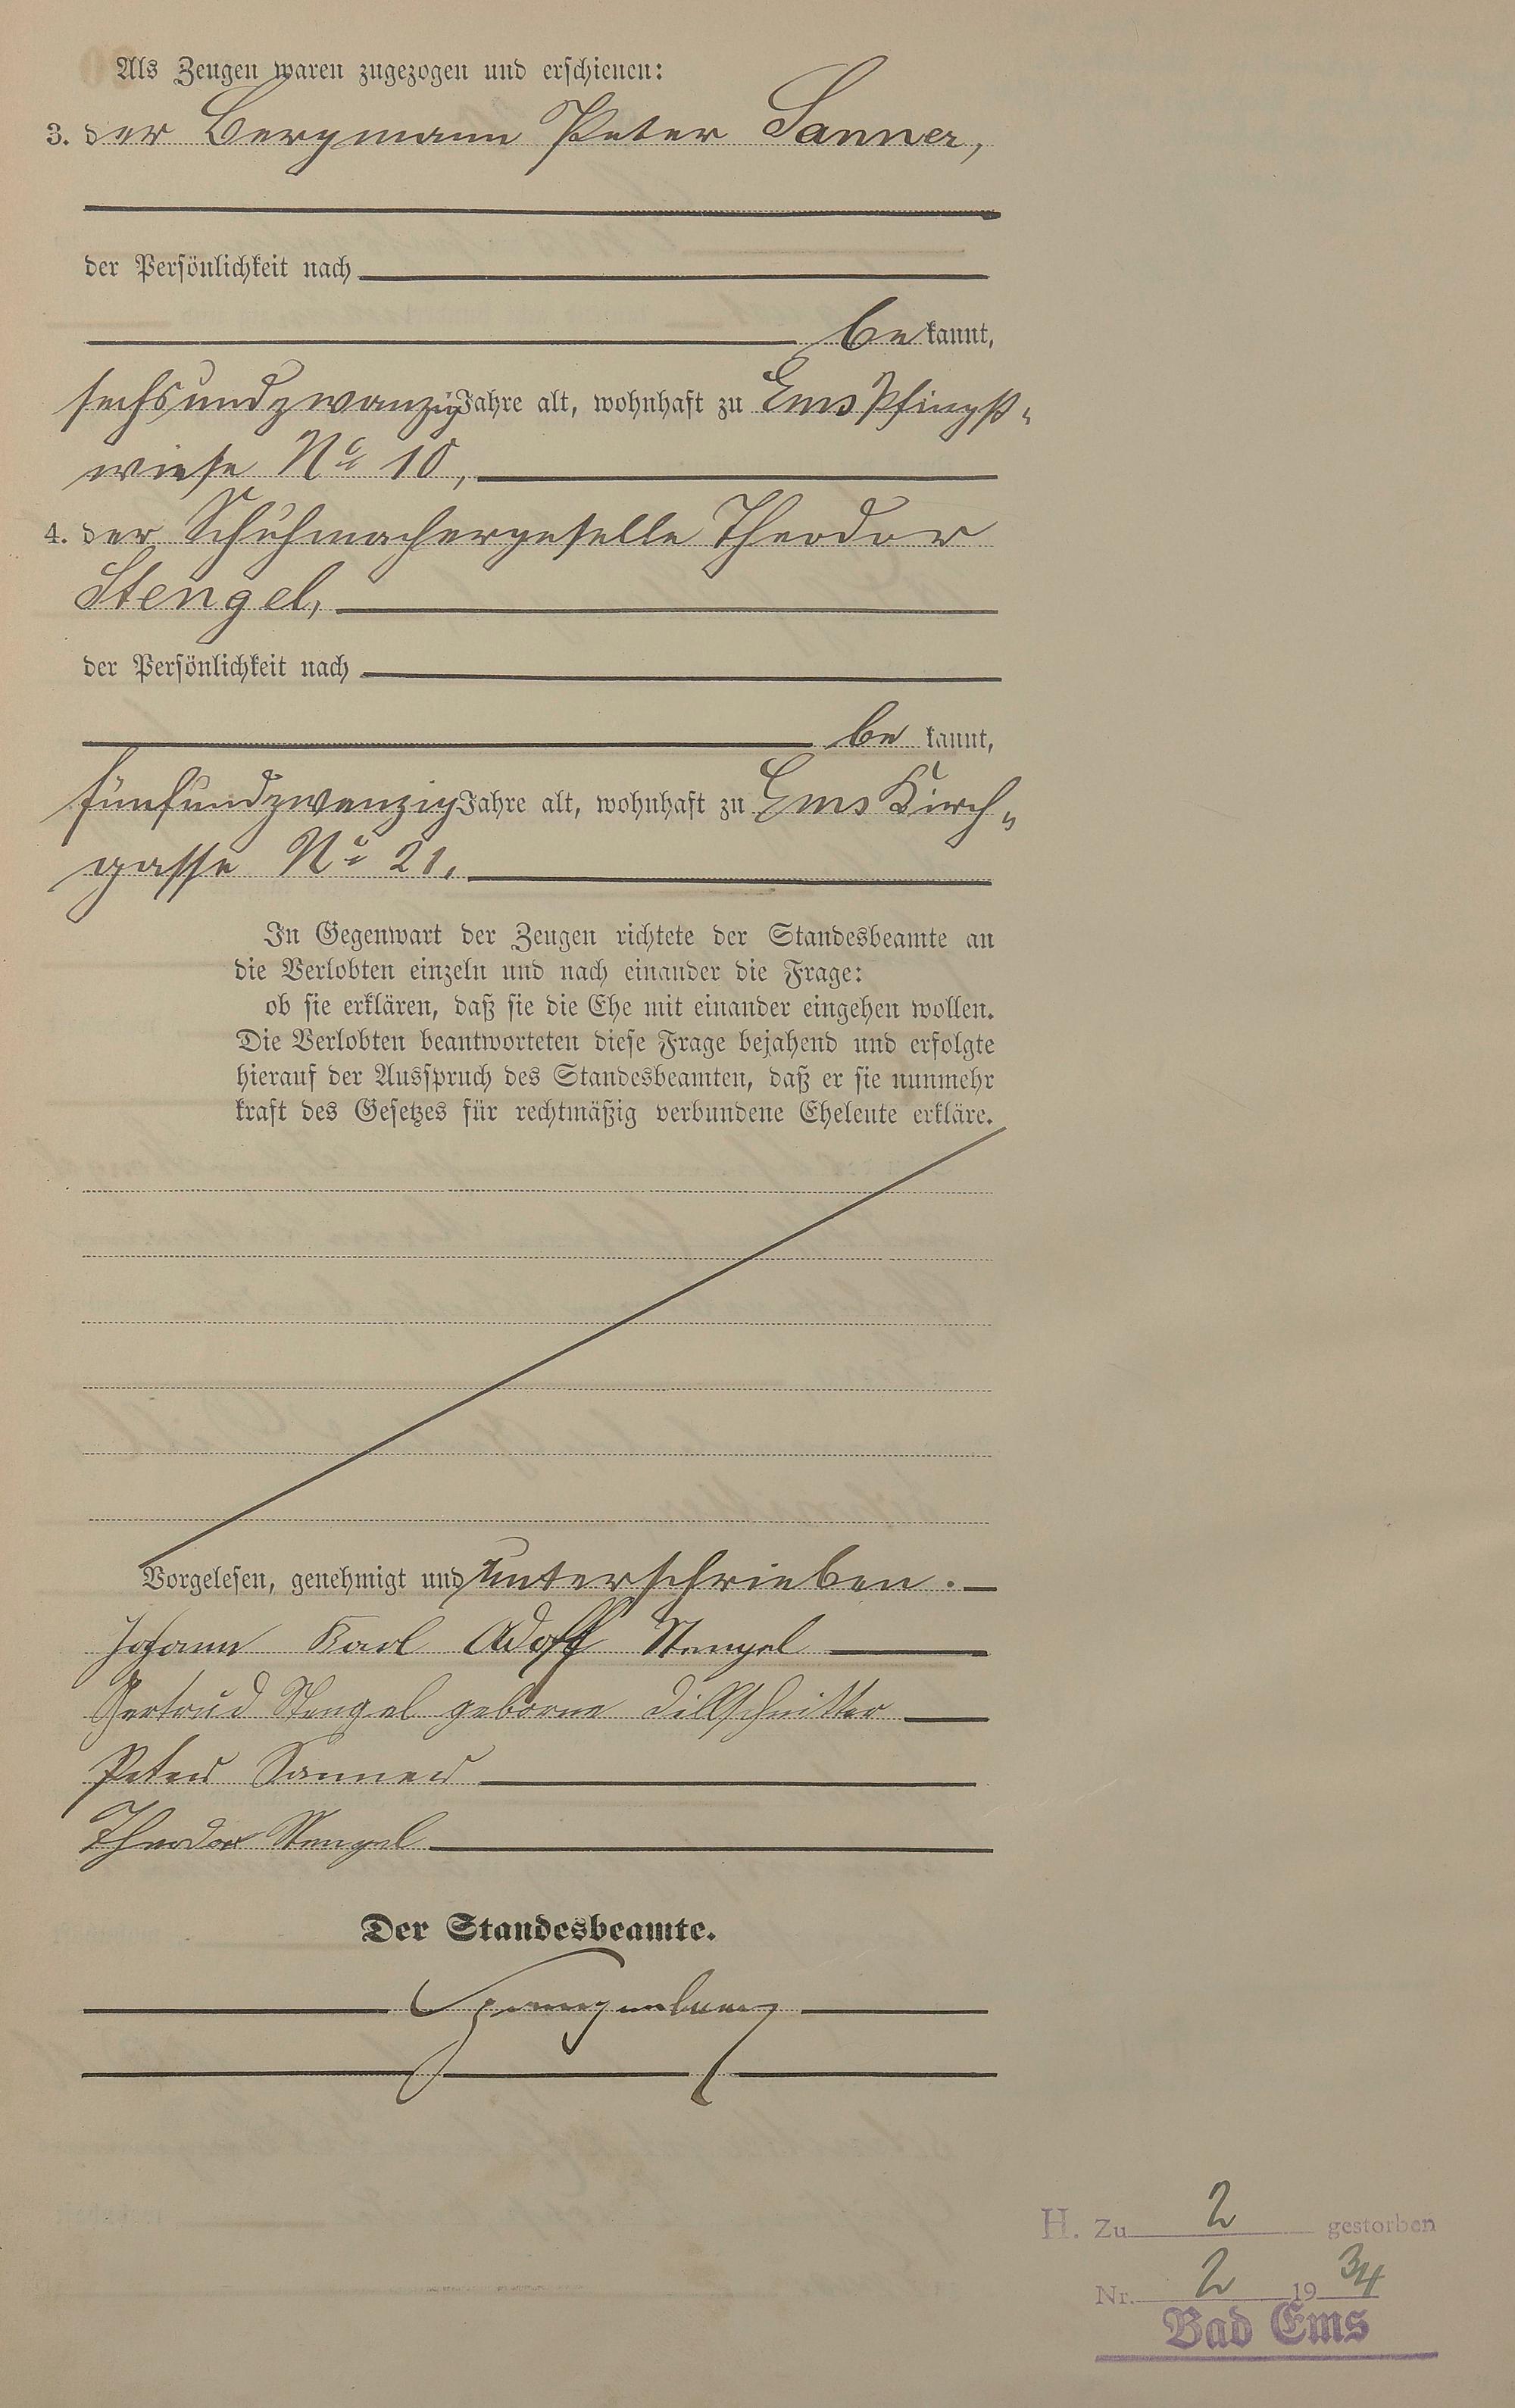 Als Zeugen waren zugezogen und erschienen:
3. der Bergmann Peter Sanner,
der Persönlichkeit nach
be kannt,
sechsundzwanzig Jahre alt, wohnhaft zu Ems Pfingst-
wiese No 10,
4. der Schuhmachergeselle Theodor
Stengel,
der Persönlichkeit nach
be kannt,
fünfundzwanzig Jahre alt, wohnhaft zu Ems Kirch-
gasse No 21.
In Gegenwart der Zeugen richtete der Standesbeamte an
die Verlobten einzeln und nach einander die Frage:
ob sie erklären, daß sie die Ehe mit einander eingehen wollen.
Die Verlobten beantworteten diese Frage bejahend und erfolgte
hierauf der Ausspruch des Standesbeamten, daß er sie nunmehr
kraft des Gesetzes für rechtmäßig verbundene Eheleute erkläre.
Vorgelesen, genehmigt und unterschrieben.
Johann Karl Adolf Stengel
Gertrud Stengel geborne Dillschnitter
Peter Sanner
Theodor Stengel
Der Standesbeamte.
H. Zu 2 gestorben
Nr. 2 19 34
Bad Ems